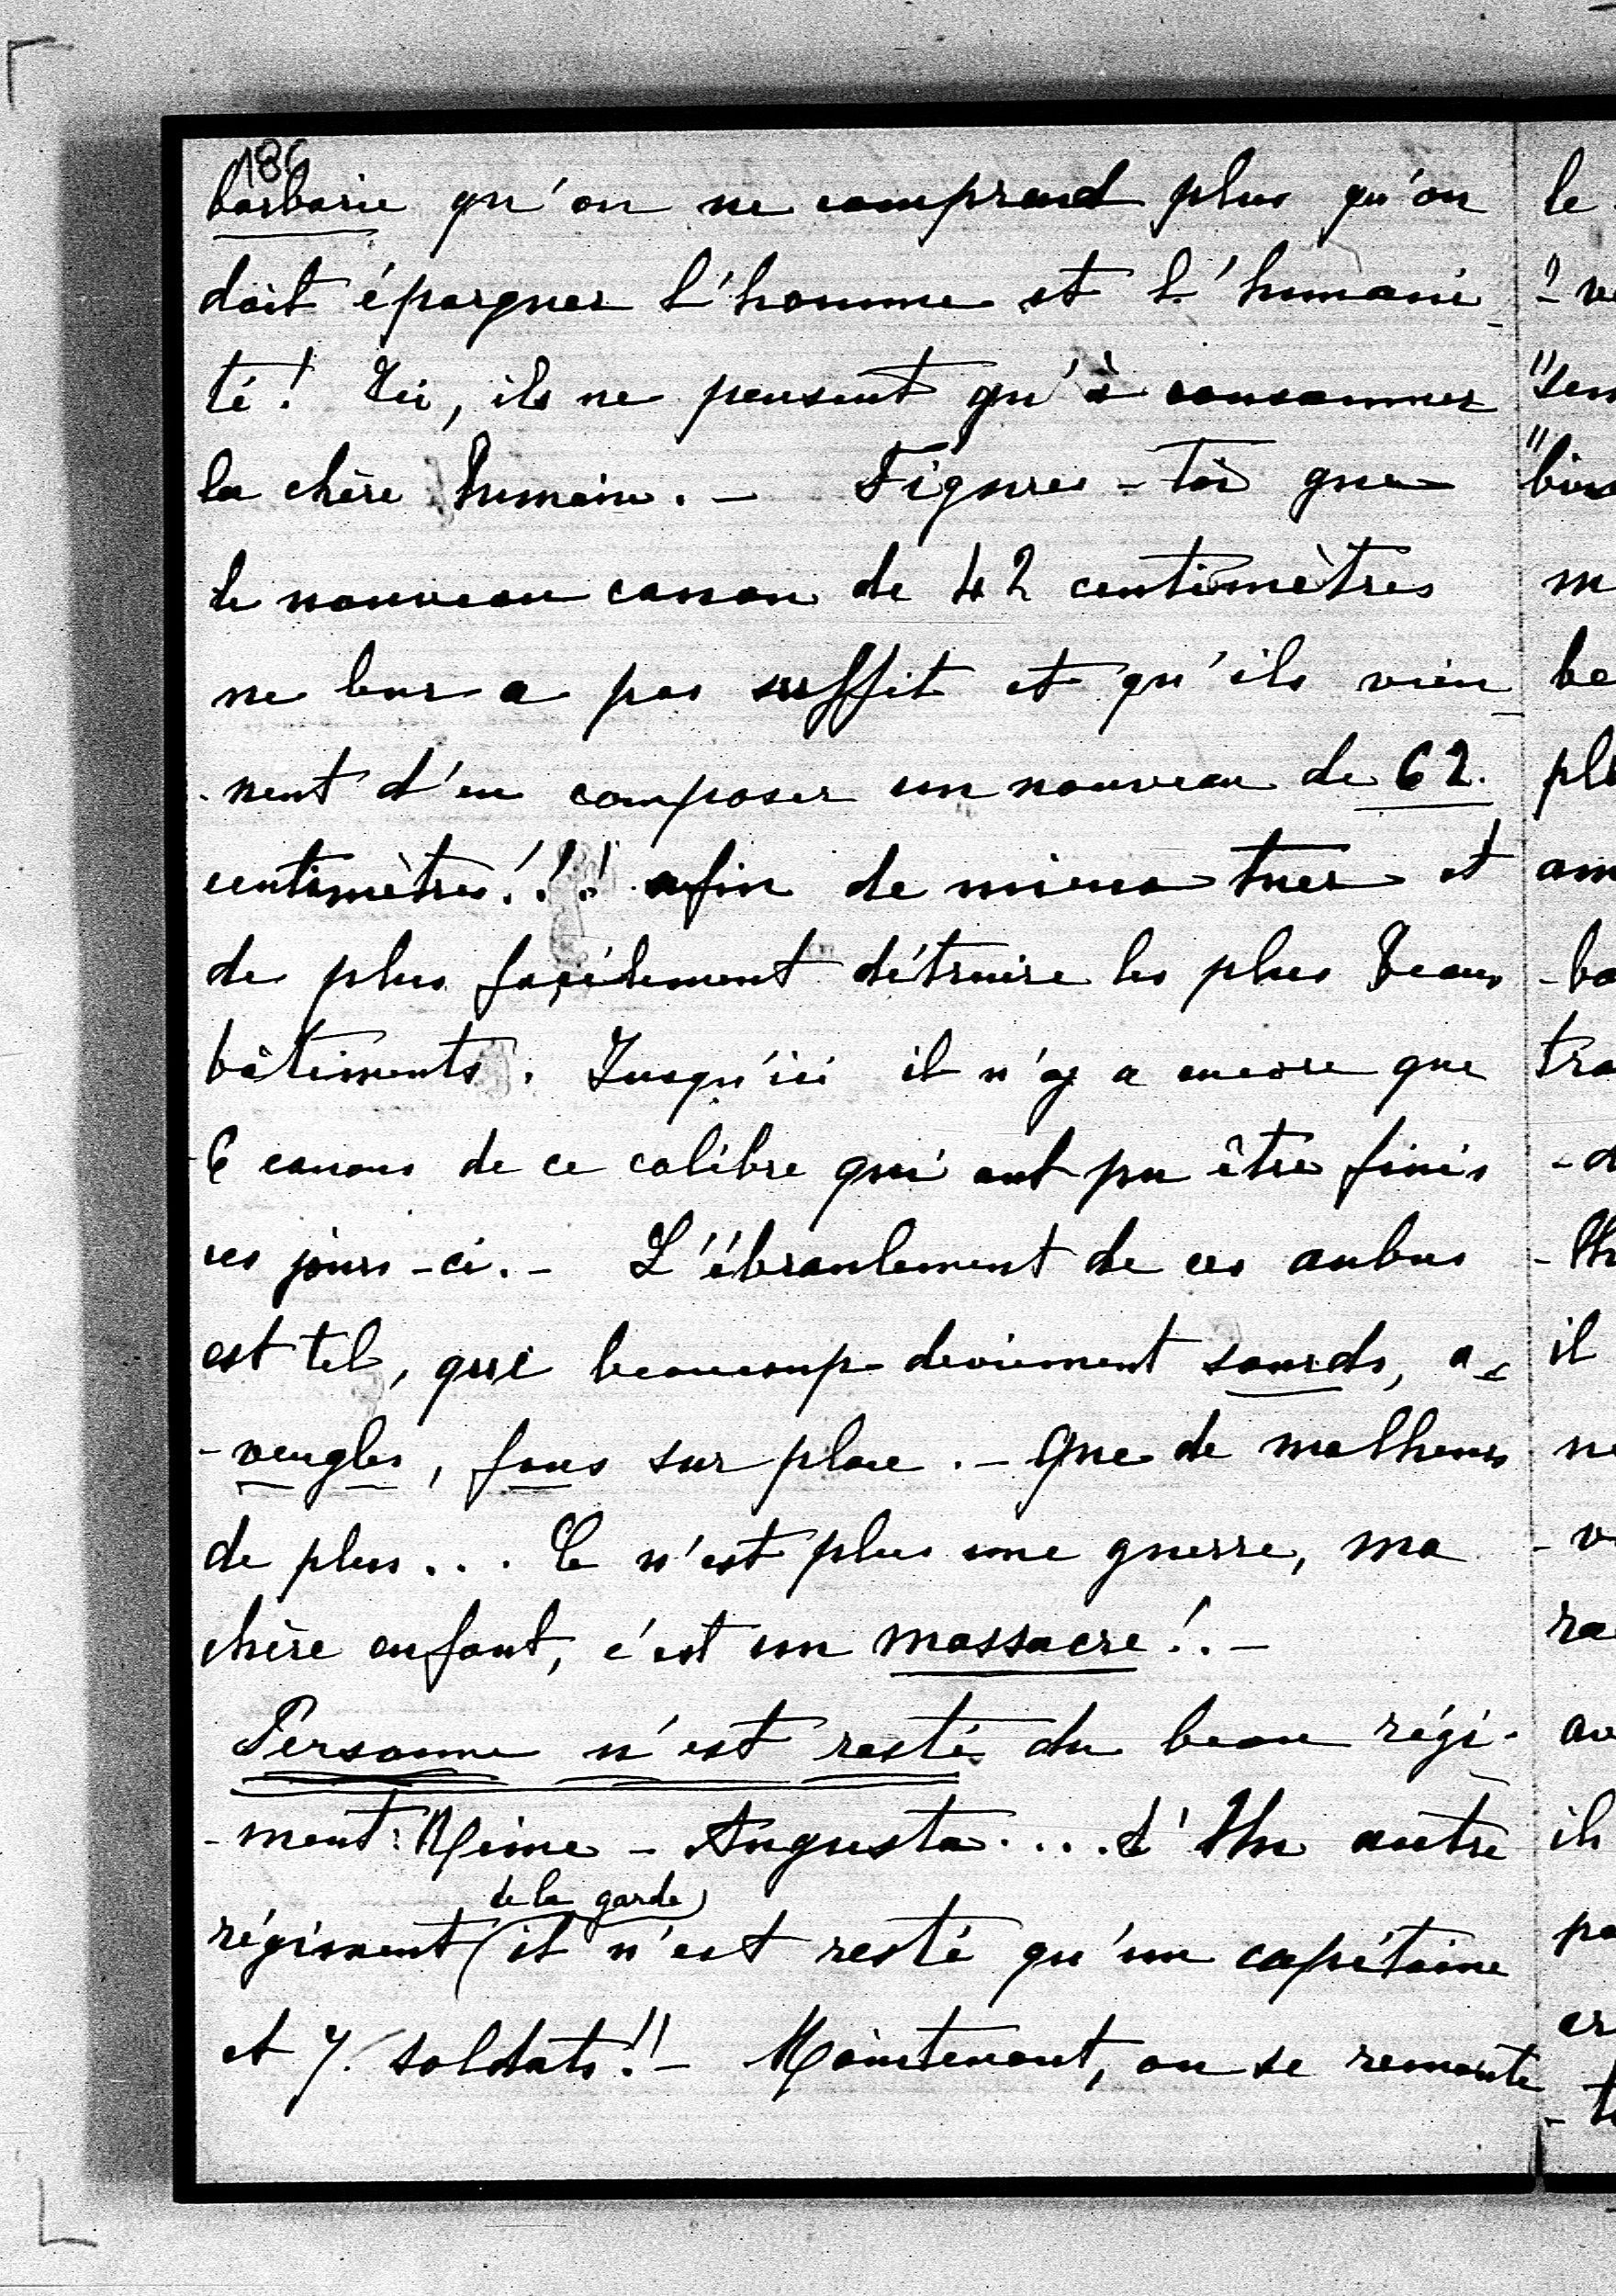 186
barbarie qu'on ne comprend plus qu'on
doit épargner l'homme et l'humani-
té! Ici, ils ne pensent qu'à consommer
la chère humaine. - Figures-toi que
le nouveau canon de 42 centimètres
ne leur a pas suffit et qu'ils vien-
-nent d'en composer un nouveau de 62.
centimètres!!! afin de mieux tuer et
de plus facilement détruire les plus beaux
bâtiments. Jusqu'ici il n'y a encore que
6 canons de ce calibre qui ont pu être finis
ces jours-ci. - L'ébranlement de ces aubus
est tel, que beaucoup deviennent sourds, a-
-veugles, fous sur place. - Que de malheurs
de plus... Ce n'est plus une guerre, ma
chère enfant, c'est un massacre!. -
Personne n'est resté du beau régi-
-ment: Reine - Augusta.... d'Un autre
de la garde)
régiment (il n'est resté qu'un capitaine
et 7. soldats!! - Maintenant, on se remonte
le
il